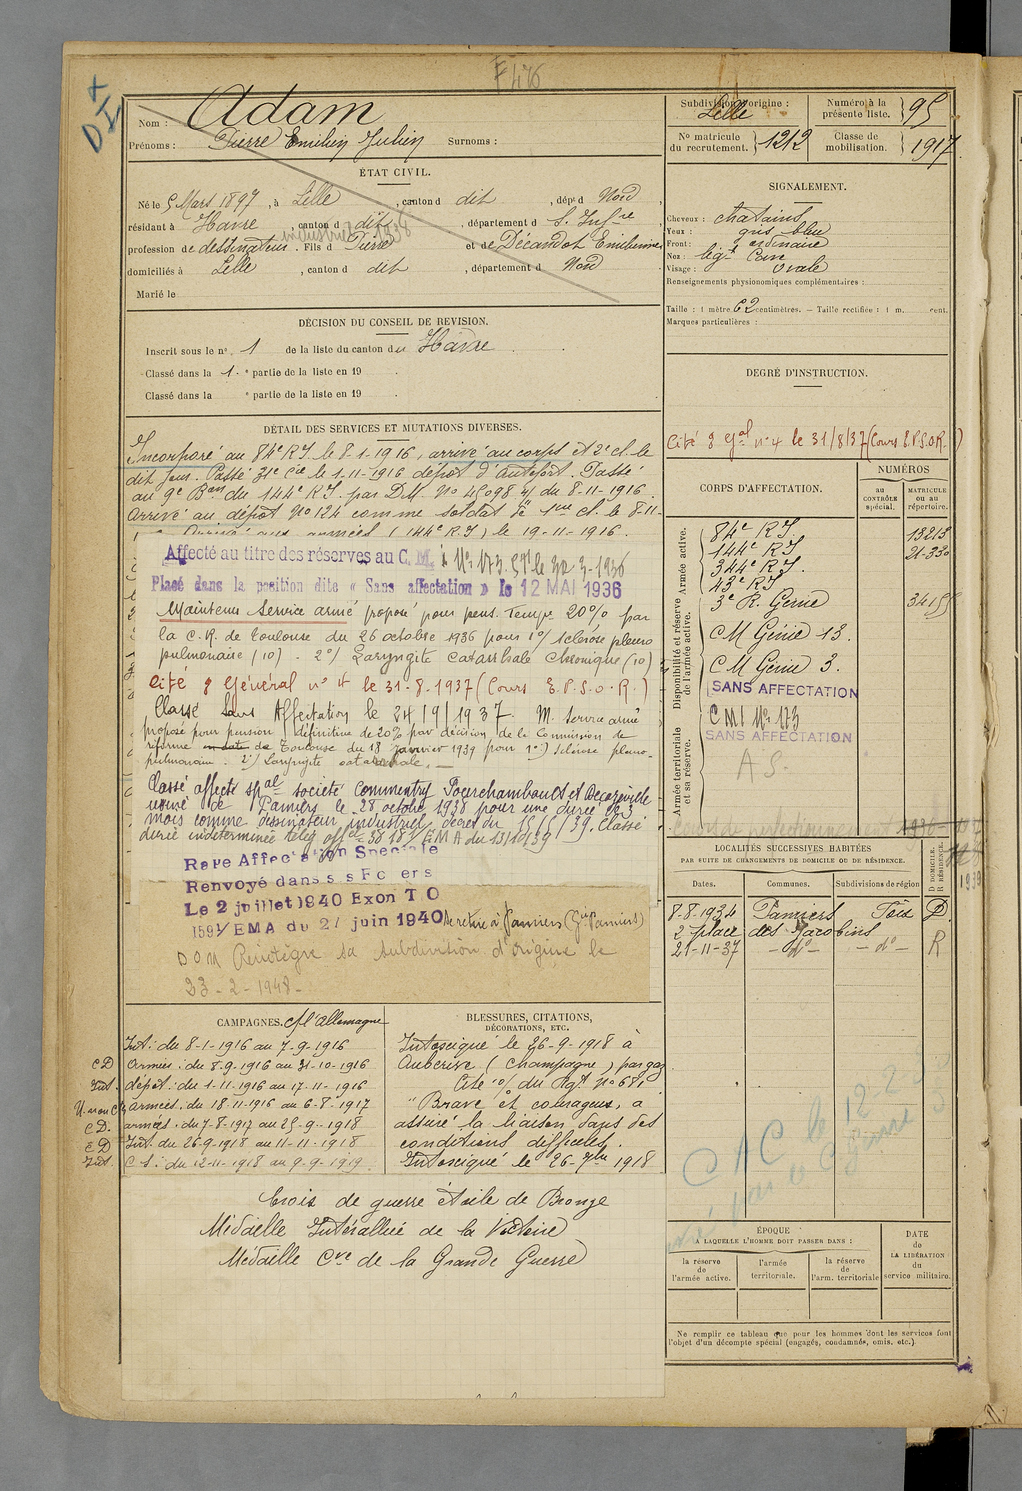 F 476
D I
Nom : Adam
Prénoms : Pierre Emilien Julien Surnoms :
ÉTAT CIVIL.
Né le 5 Mars 1897, à Lille, canton dudit, dépt d Nord,
résidant à Havre, canton dudit, département d S. Infre
industriel 1938
profession de dessinateur. Fils d Pierre et de Décandot Emilienne,
domiciliés à Lille, canton dudit, département d Nord
Marié le
DÉCISION DU CONSEIL DE REVISION.
Inscrit sous le n° 1 de la liste du canton du Havre
Classé dans la 1e partie de la liste en 19 .
Classé dans la e partie de la liste en 19 .
DÉTAIL DES SERVICES ET MUTATIONS DIVERSES.
Incorporé au 84e R.I. le 8-1-1916, arrivé au corps et 2e cl. le
dit jour. Passé 31e Cie le 1-11-1916 dépôt d'Autefort. Passé
au 9e Bon du 144e R.I. par D.M. No 45098 4/ du 8-11-1916.
Arrivé au dépôt No 124 comme soldat de 1re cl. le 8-11-
aux armées (144e R.I.) le 19-11-1916.
Affecté au titre des réserves au C. M. i No 173. le 30-3-1936
Placé dans la position dite « Sans affectation » le 12 MAI 1936
Maintenu Service armé proposé pour pens. Temp. 20% par
la C.R. de Toulouse du 26 octobre 1936 pour 1°/ sclérose pleuro
pulmonaire (10) - 2°/ Laryngite catarrhale chronique (10)
Cité 9 Général n° 4 le 31.8.1937 (Cours E.P.S.O.R.)
Classé Sans Affectation le 24/9/1937. M. Service armé
proposé pour pension définitive de 20% par décision de la Commission de
réforme de Toulouse du 18 janvier 1939 pour 1°) sclérose pleuro-
pulmonaire. 2°) Laryngite catarrhale.
Classé affecté spal société Commentry Fourchambault et Decazeville
usine de Pamiers le 28 octobre 1938 pour une durée de 3
mois comme dessinateur industriel, décret du /39. Classé
durée indéterminée télég offel 38 18/EMA du 13/10/39
Rayé Affectation Spéciale
Renvoyé dans ses Foyers
Le 2 juillet 1940 Exon T O
1591/EMA du 21 juin 1940 se retire à Pamiers (Gie Pamiers)
DOM Réintègre sa subdivision d'origine le
23-2-1948-
CAMPAGNES. C/ l'Allemagne
Int. : du 8-1-1916 au 7-9-1916
CD Armées : du 8-9-1916 au 31-10-1916
Int. dépôt : du 1-11-1916 au 17-11-1916
armées : du 18-11-1916 au 6-8-1917
CD. armées : du 7-8-1917 au 25-9-1918
CD Int. du 26-9-1918 au 11-11-1918
Int. C.S. : du 12-11-1918 au 9-9-1919.
BLESSURES, CITATIONS,
DÉCORATIONS, ETC.
Intoxiqué le 26-9-1918 à
Auberive (Champagne) par gaz
Cité o/ du Rgt No 681
"Brave et courageux, a
assuré la liaison dans des
conditions difficiles.
Intoxiqué le 26-7bre 1918
Croix de guerre étoile de Bronze
Médaille Interalliée de la Victoire
Médaille Cve de la Grande Guerre
Subdivision d'origine : Lille
Numéro à la présente liste. 95
No matricule du recrutement. 1212
Classe de mobilisation. 1917
SIGNALEMENT.
Cheveux : chatains
Yeux : gris bleu
Front : ordinaire
Nez : légt cave
Visage : ovale
Renseignements physionomiques complémentaires :
Taille : 1 mètre 62 centimètres. — Taille rectifiée : 1 m. cent.
Marques particulières :
DEGRÉ D'INSTRUCTION.
Cité 9 Gal n° 4 le 31/8/37 (Cours E.P.S.O.R.)
CORPS D'AFFECTATION.
NUMÉROS
AU CONTRÔLE spécial.
MATRICULE OU AU répertoire.
Armée active.
84e R.I. 13215
144e R.I. 21-330
344e R.I.
43e R.I.
Disponibilité et réserve de l'armée active.
3e R. Génie 34155
CM Génie 13.
CM Génie 3.
SANS AFFECTATION
Armée territoriale et sa réserve.
CMI No 173
SANS AFFECTATION
A S.
Cours de perfectionnement 1936-1937
1939
LOCALITÉS SUCCESSIVES HABITÉES
PAR SUITE DE CHANGEMENTS DE DOMICILE OU DE RÉSIDENCE.
D DOMICILE. R RÉSIDENCE.
Dates. Communes. Subdivisions de région
8-8-1934 Pamiers Foix D
2 place des Jacobins
21-11-37 - do - - do - R
C A C le 12-2-
ÉPOQUE
A LAQUELLE L'HOMME DOIT PASSER DANS :
la réserve de l'armée active.
l'armée territoriale.
la réserve de l'arm. territoriale
DATE de LA LIBÉRATION du service militaire.
Ne remplir ce tableau que pour les hommes dont les services font
l'objet d'un décompte spécial (engagés, condamnés, omis, etc.).